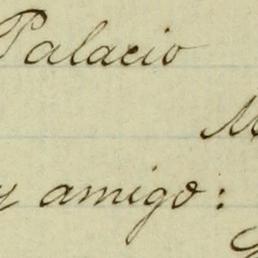 Palacio
M
y amigo: